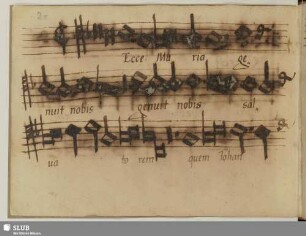 Ecce Ma ria ge.
nuit nobis genuit nobis sal.
ua to rem quem Johan
SLUB